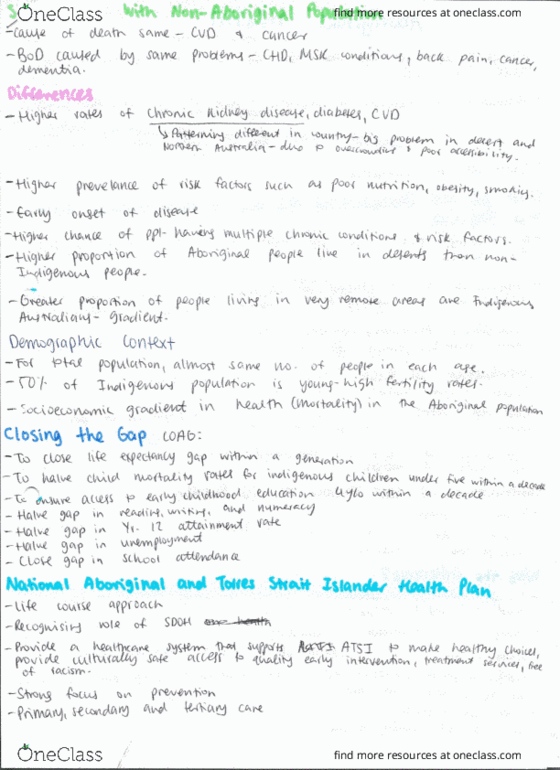 OneClass
find more resources at oneclass.com
with Non-Aboriginal
- Cause of death same - CVD & cancer
- BoD caused by same problems - CHD, MSK conditions, back pain, cancer,
dementia.
Differences
- Higher rates of Chronic Kidney disease, diabetes, CVD
↳ Patterning different in country - big problem in desert and
Northern Australia - due to overcrowding & poor accessibility.
- Higher prevelance of risk factors such as poor nutrition, obesity, smoking.
- Early onset of disease
- Higher chance of ppl having multiple chronic conditions & risk factors.
- Higher proportion of Aboriginal people live in deserts than non-
Indigenous people.
- Greater proportion of people living in very remote areas are Indigenous
Australians - gradient.
Demographic Context
- For total population, almost same no. of people in each age.
- 50% of Indigenous population is young - high fertility rates.
- Socioeconomic gradient in health (mortality) in the Aboriginal population
Closing the Gap COAG:
- To close life expectancy gap within a generation
- To halve child mortality rates for indigenous children under five within a decade
- To ensure access to early childhood education 4y/o within a decade
- Halve gap in reading, writing, and numeracy
- Halve gap in Yr. 12 attainment rate
- Halve gap in unemployment
- Close gap in school attendance
National Aboriginal and Torres Strait Islander Health Plan
- Life course approach
- Recognising role of SDOH
- Provide a healthcare system that supports ATSI to make healthy choices,
provide culturally safe access to quality early intervention, treatment services, free
of racism.
- Strong focus on prevention
- Primary, secondary and tertiary care
OneClass
find more resources at oneclass.com